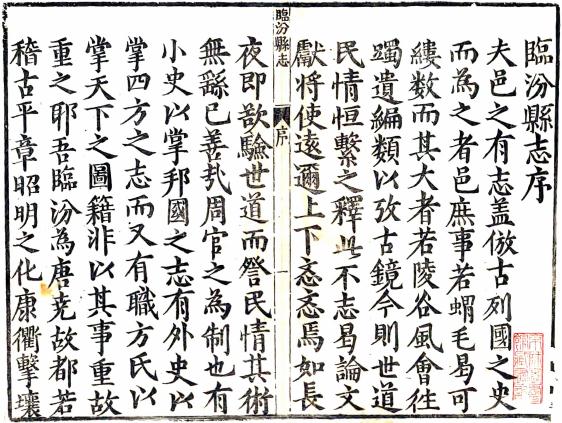 臨汾縣志序
夫邑之有志蓋倣古列國之史
而為之者邑庶事若蝟毛曷可
縷數而其大者若陵谷風會往
躅遺編類以攷古鏡今則世道
民情恒繫之釋此不志曷論文
獻將使遠邇上下忞忞焉如長
臨汾縣志
序
一
夜即欲驗世道而詧民情其術
無繇已善哉周官之為制也有
小史以掌邦國之志有外史以
掌四方之志而又有職方氏以
掌天下之圖籍非以其事重故
重之耶吾臨汾為唐堯故都若
稽古平章昭明之化康衢擊壤